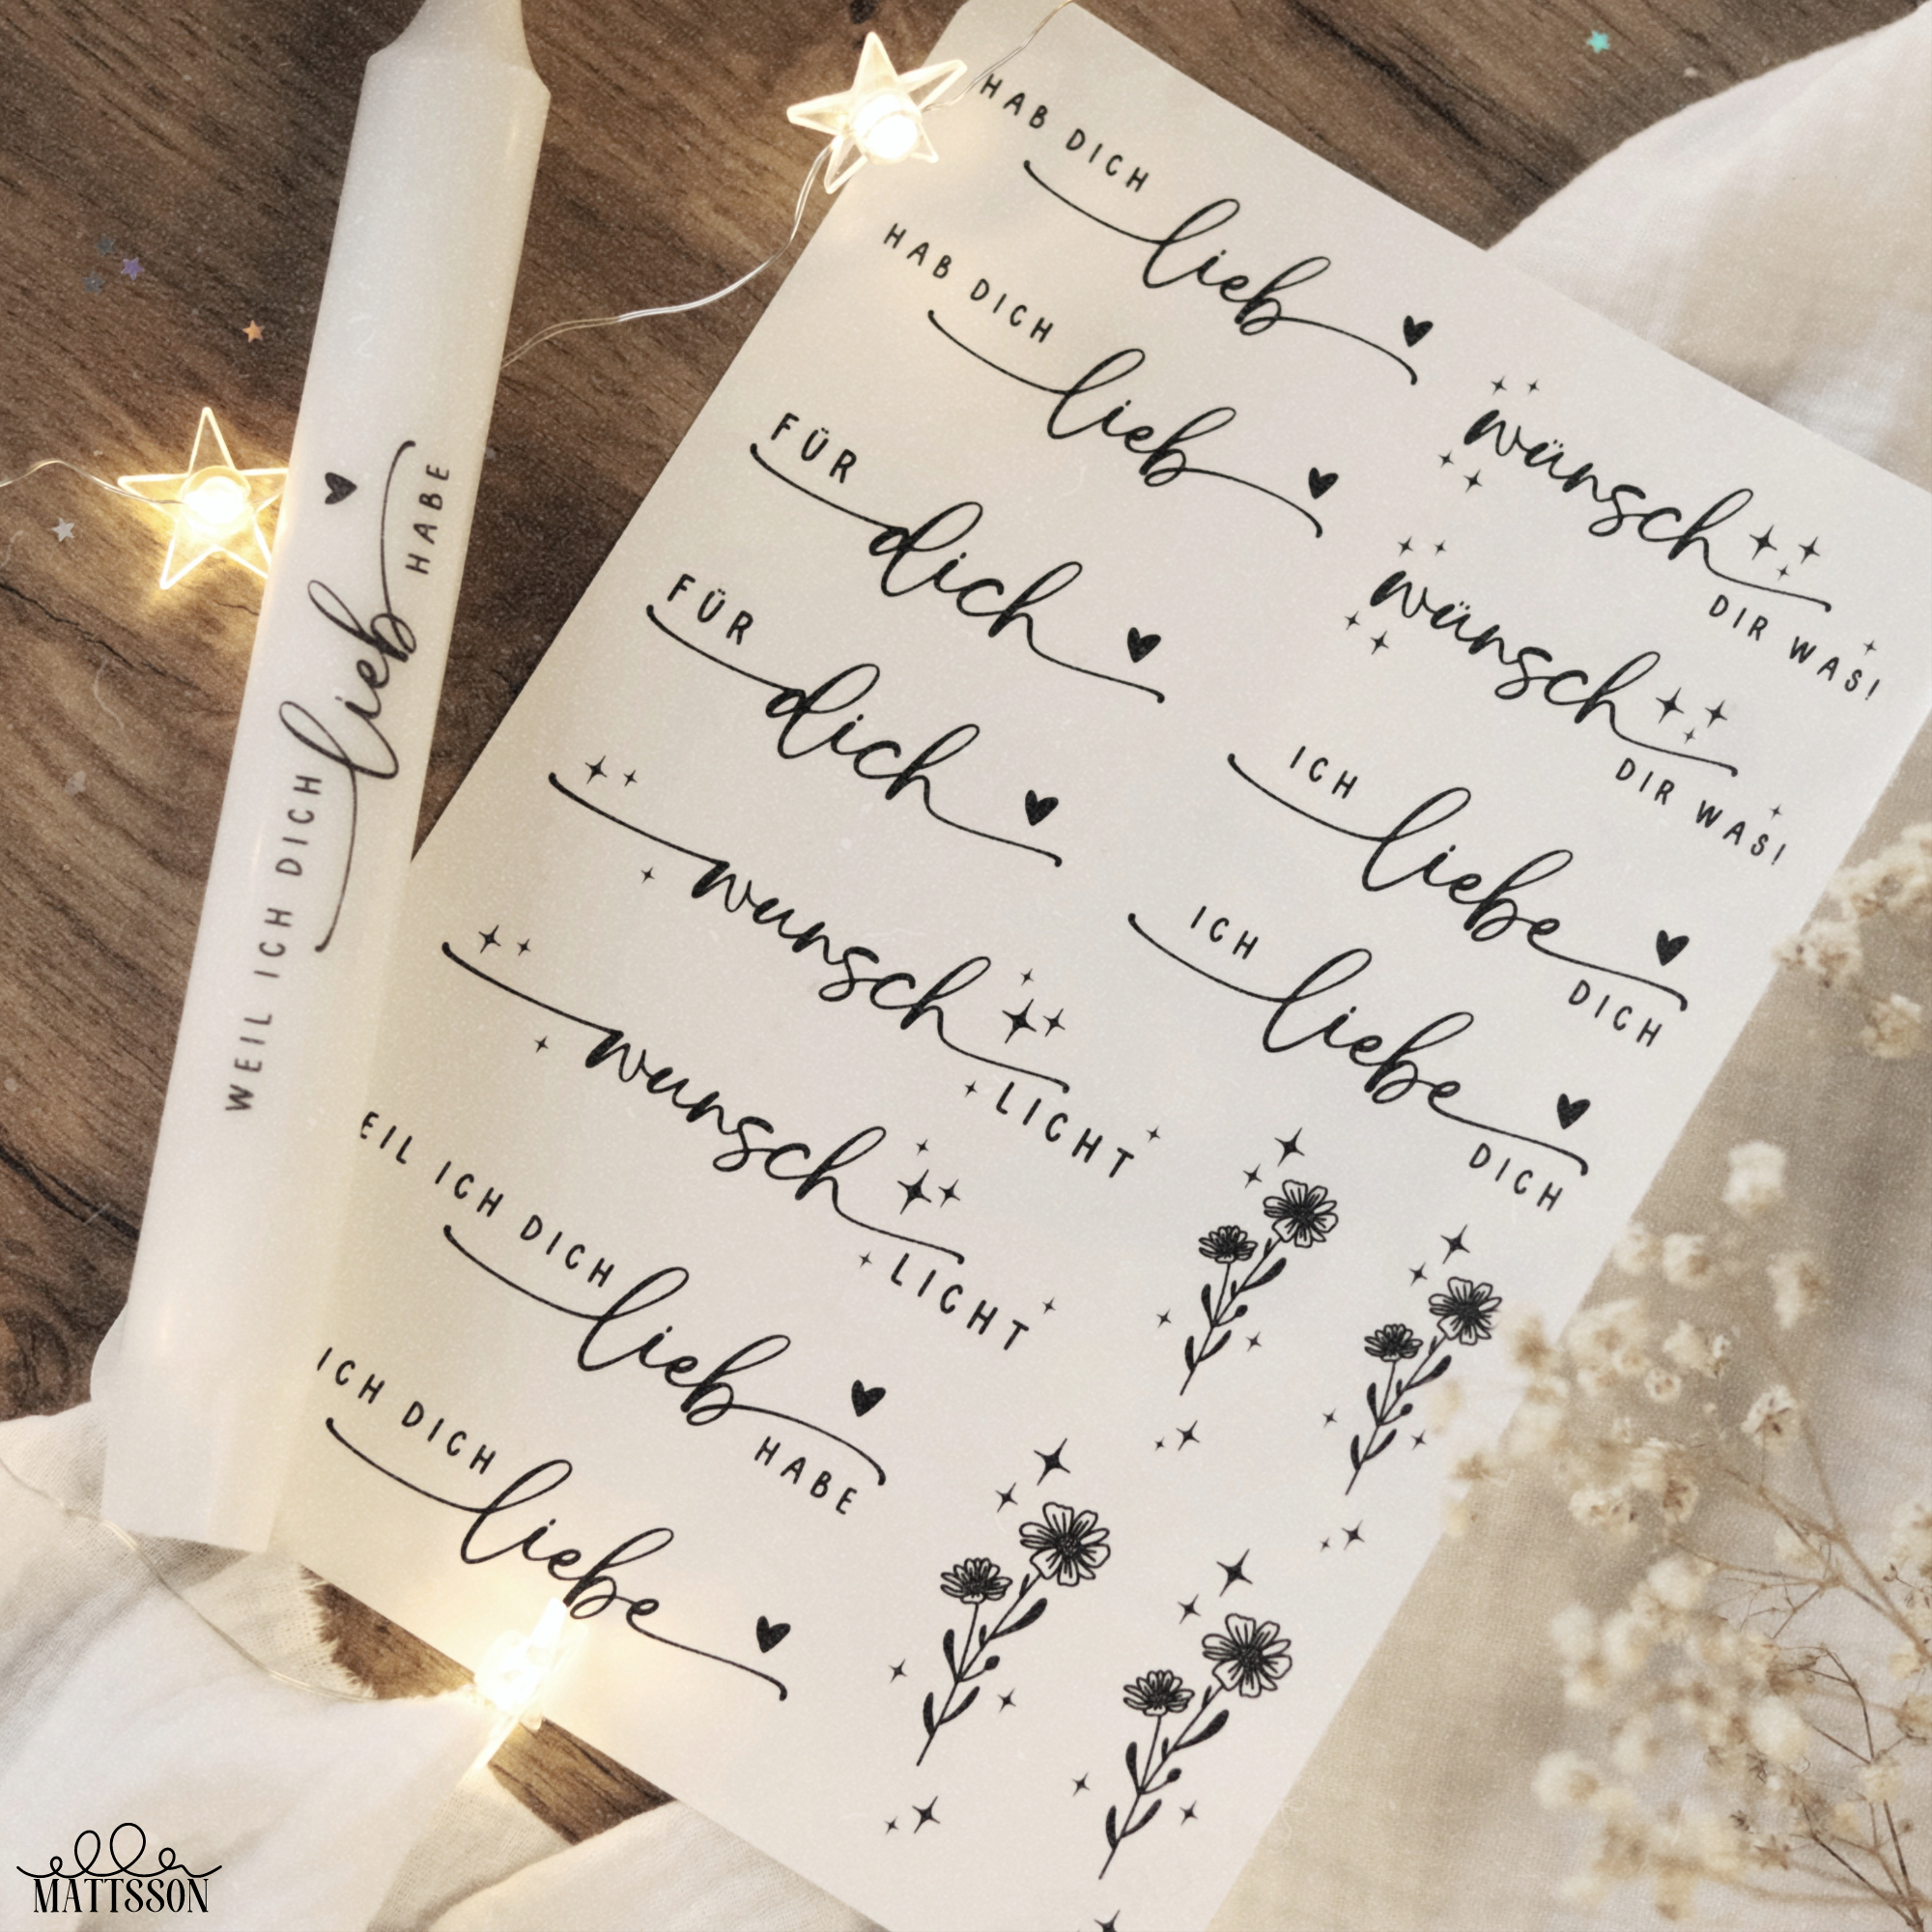 WEIL ICH DICH
lieb
HABE
HAB DICH
lieb
HAB DICH
lieb
FÜR
dich
FÜR
dich
wunsch
LICHT
wunsch
LICHT
EIL ICH DICH
lieb
HABE
ICH DICH
liebe
wünsch
DIR WAS!
wünsch
DIR WAS!
ICH
liebe
DICH
ICH
liebe
DICH
ella
MATTSSON